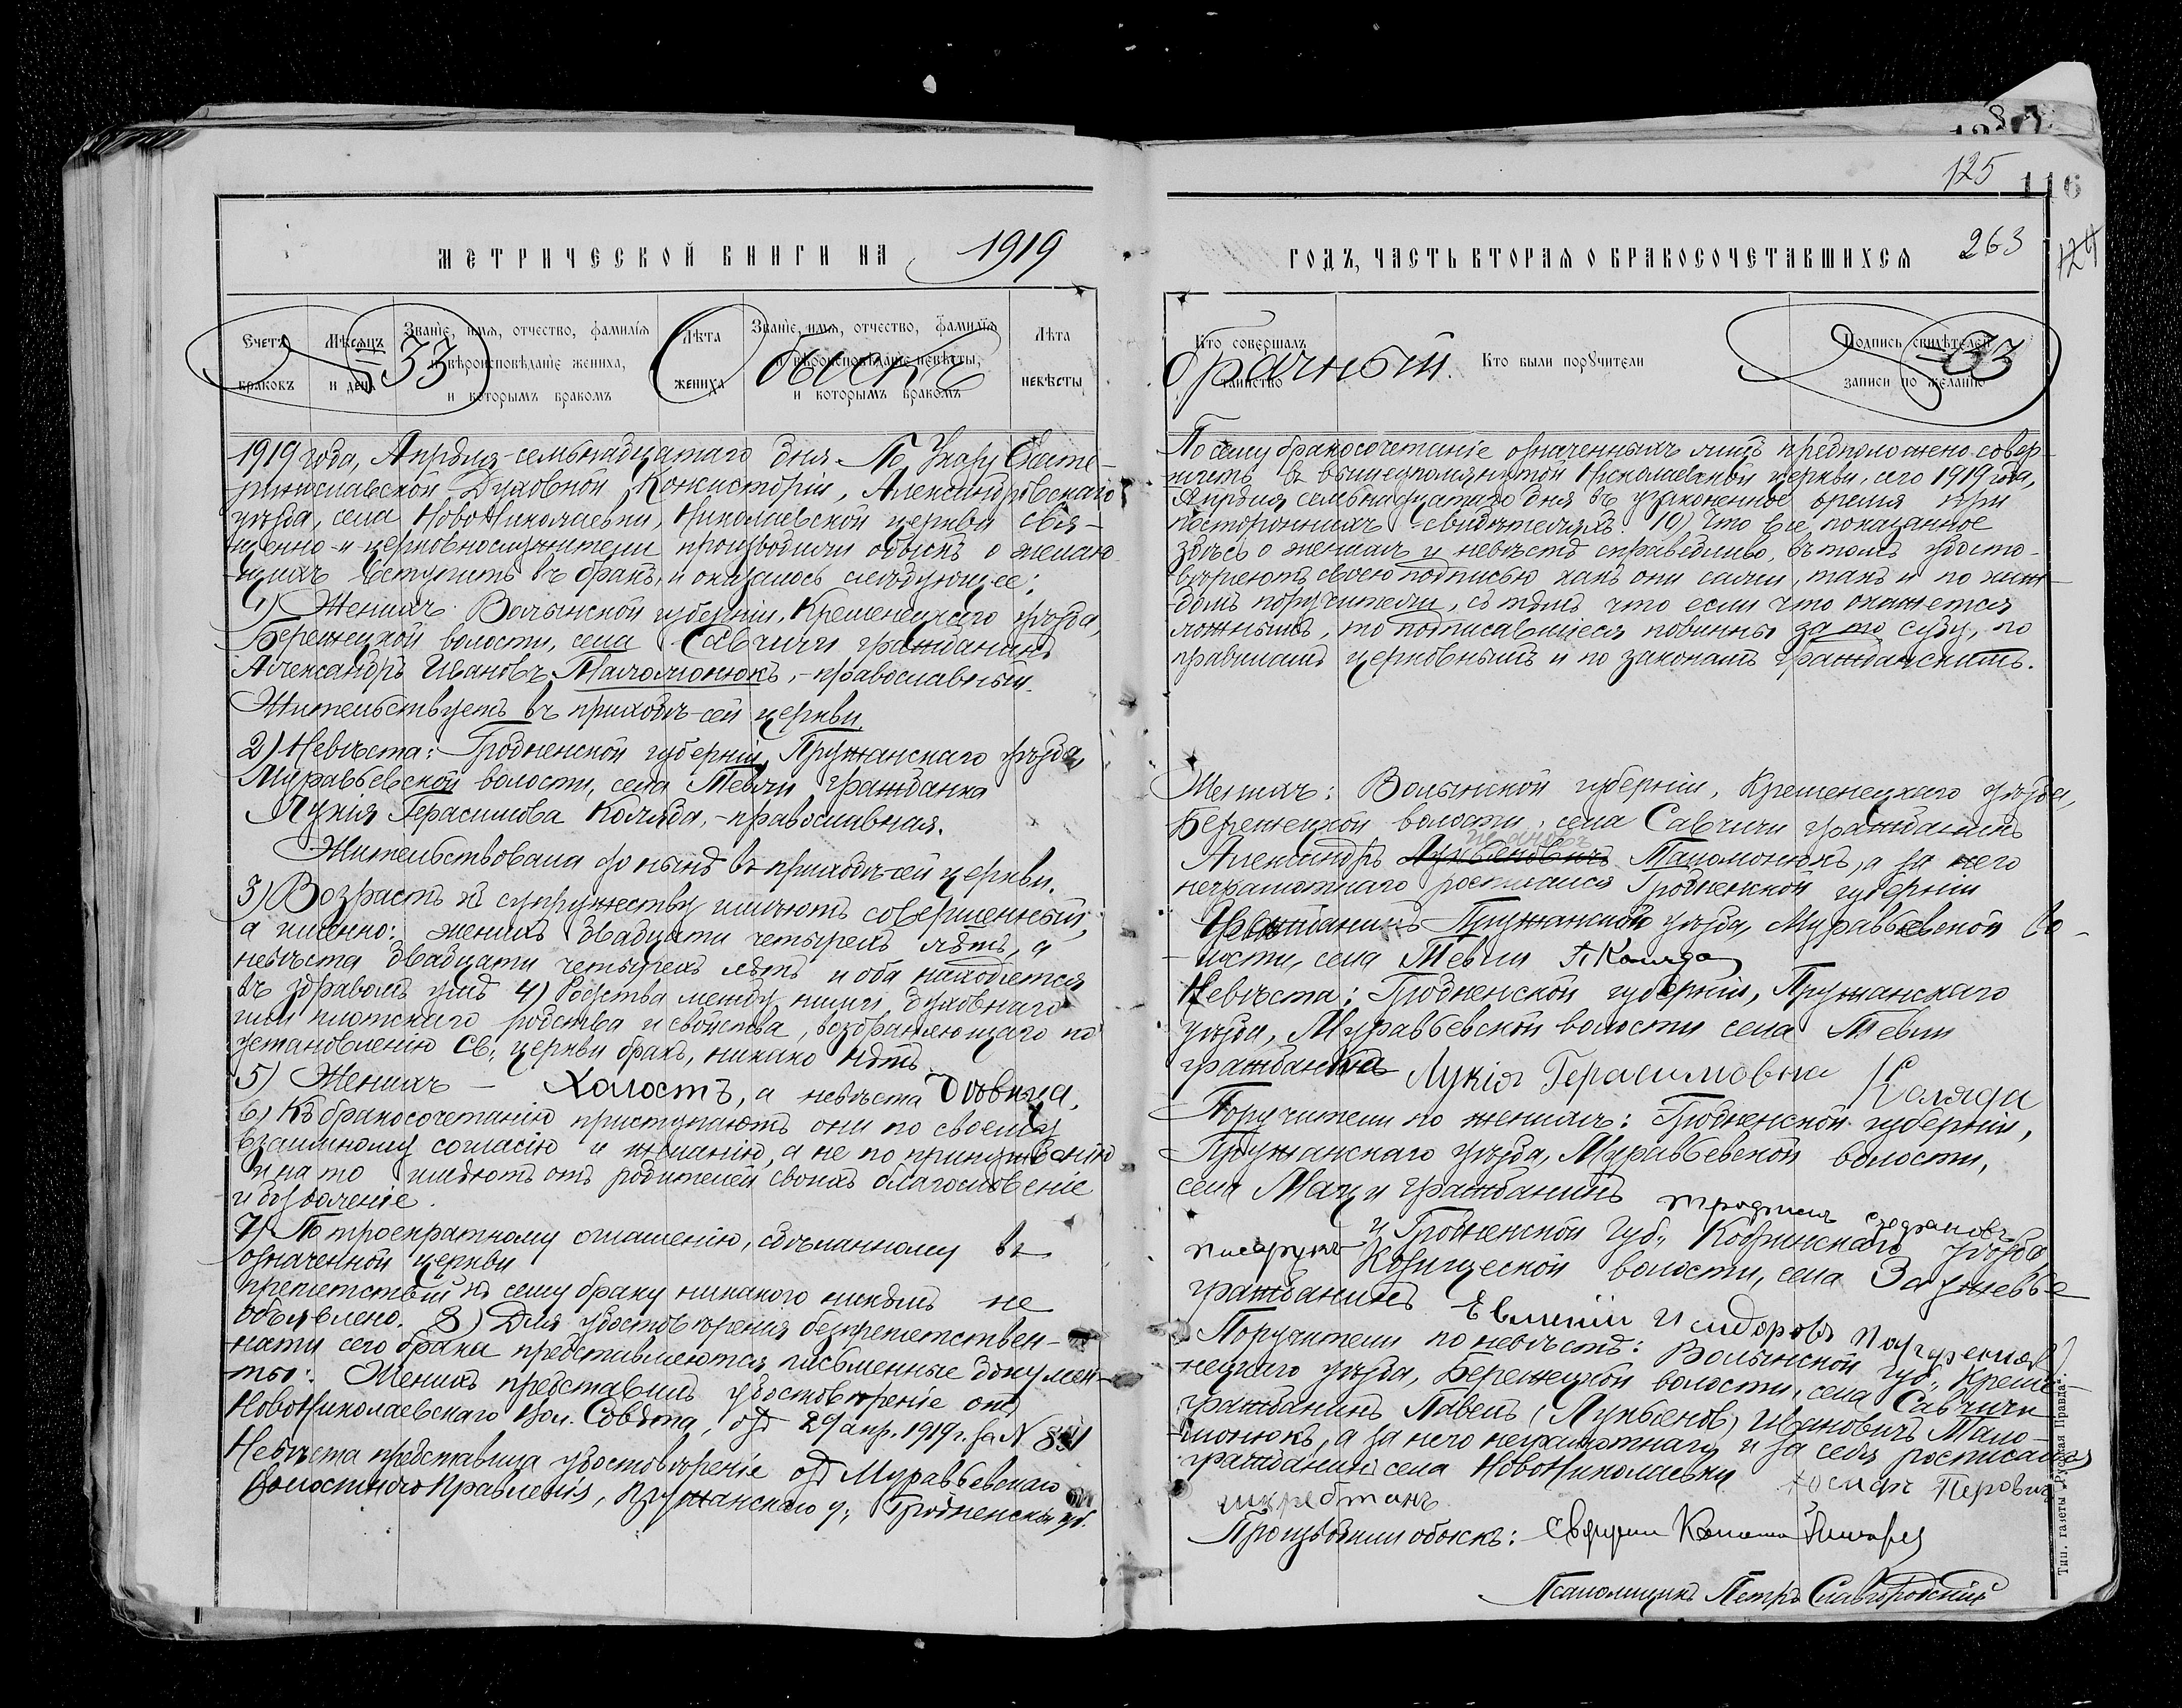 125
116
МЕТРИЧЕСКОЙ КНИГИ НА 1919
Счетъ браковъ
Мѣсяцъ и день
Званіе, имя, отчество, фамилія и вѣроисповѣданіе жениха, и которымъ бракомъ
Лѣта жениха
Званіе, имя, отчество, фамилія и вѣроисповѣданіе невѣсты, и которымъ бракомъ
Лѣта невѣсты
33 Обыскъ
1919 года, Апрѣля семьнадцатаго дня. По Указу Екате-
ринославской Духовной Консисторіи, Александровскаго
уѣзда, села НовоНиколаевки, Николаевской церкви свя-
щенно-и-церковнослужители производили обыскъ о желаю-
щихъ вступить въ бракъ, и оказалось слѣдующее:
1) Женихъ: Волынской губерніи, Кременецкаго уѣзда,
Бережецкой волости, села Савчичи гражданинъ
Александръ Ивановъ Маломонюкъ, - православный.
Жительствуетъ въ приходѣ-сей церкви
2) Невѣста: Гродненской губерніи, Пружанскаго уѣзда,
Муравьевской волости, села Тевли гражданка
Лукія Герасимова Коляда, - православная.
Жительствовала до нынѣ въ приходѣ-сей церкви.
3) Возрастъ къ супружеству имѣютъ совершенный,
а именно: женихъ двадцати четырехъ лѣтъ, а
невѣста двадцати четырехъ лѣтъ и оба находятся
въ здравомъ умѣ 4) Родства между ними духовнаго
или плотскаго родства и свойства, возбраняющаго по
установленію св. церкви бракъ, никако нѣтъ.
5) Женихъ - Холостъ, а невѣста Дѣвица.
6) Къ бракосочетанію приступаютъ они по своему
взаимному согласію и желанію, а не по принужденію
и на то имѣютъ отъ родителей своихъ благословеніе
и дозволеніе.
7) По троекратному оглашенію, сдѣланному въ
означенной церкви
препятствій къ сему браку никакого никѣмъ не
объявлено. 8) Для удостовѣренія безпрепятствен-
ности сего брака представляются письменные докумен-
ты: Женихъ представилъ удостовѣреніе отъ
НовоНиколаевскаго Вол. Совѣта, отъ 29 апр. 1919 г. за N 831
Невѣста представила удостовѣреніе отъ Муравьевскаго
Волостного Правленія, Пружанскаго у; Гродненской губ.
ГОДЪ, ЧАСТЬ ВТОРАЯ О БРАКОСОЧЕТАВШИХСЯ
263
124
Кто совершалъ таинство
Кто были поручители
Подпись свидѣтелей записи по желанію
брачный. 33
По сему бракосочетаніе означенныхъ лицъ предположено совер-
шить въ вышеупомянутой Николаевской церкви, сего 1919 года,
Апрѣля семьнадцатаго дня въ узаконенное время при
постороннихъ свидѣтеляхъ. 10) Что все показанное
здѣсь о женихѣ и невѣстѣ справедливо, въ томъ удосто-
вѣряютъ своею подписью какъ они сами, такъ и по каж-
домъ поручители, съ тѣмъ что если что окажется
ложнымъ, то подписавшіеся повинны за то суду, по
правиламъ церковнымъ и по законамъ гражданскимъ.
Женихъ: Волынской губерніи, Кременецкаго уѣзда,
Бережецкой волости, села Савчичи гражданинъ
Ивановъ
Александръ Маломонюкъ, а за него
неграмотнаго росписался Гродненской губерніи
гражданинъ Пружанской уѣзда, Муравьевской во-
лости, села Тевли Коляда
Невѣста: Гродненской губерніи, Пружанскаго
уѣзда, Муравьевской волости села Тевли
гражданка Лукія Герасимовна Коляда
Поручители по женихѣ: Гродненской губерніи,
Пружанскаго уѣзда, Муравьевской волости,
села Мацы гражданинъ
и Гродненской губ., Кобринскаго уѣзда,
волости, села
гражданинъ Евменій Исидоровъ
Поручители по невѣстѣ: Волынской губ., Креме-
нецкаго уѣзда, Бережецкой волости, села Савчичи
гражданинъ Павелъ (Лукьеновъ) Ивановичъ Мало-
монюкъ, а за него неграмотнаго и за себя росписался
гражданинъ села НовоНиколаевки
Производили обыскъ:
Псаломщикъ Петръ Славгородскій
Тип. газеты „Русская Правда“.